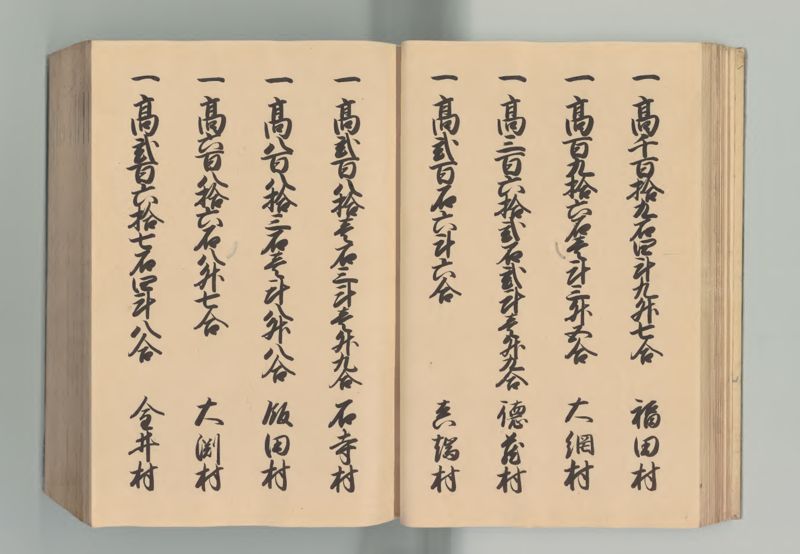 一 高千百拾九石四斗九升七合 福田村
一 高百九拾六石壱斗三升五合 大網村
一 高三百六拾弐石弐斗壱升九合 徳蔵村
一 高弐百石六斗六合 真端村
一 高弐百八拾壱石三斗壱升九合 石寺村
一 高八百八拾三石壱斗八升八合 飯田村
一 高六百八拾六石八升七合 大渕村
一 高弐百六拾七石四斗八合 金井村